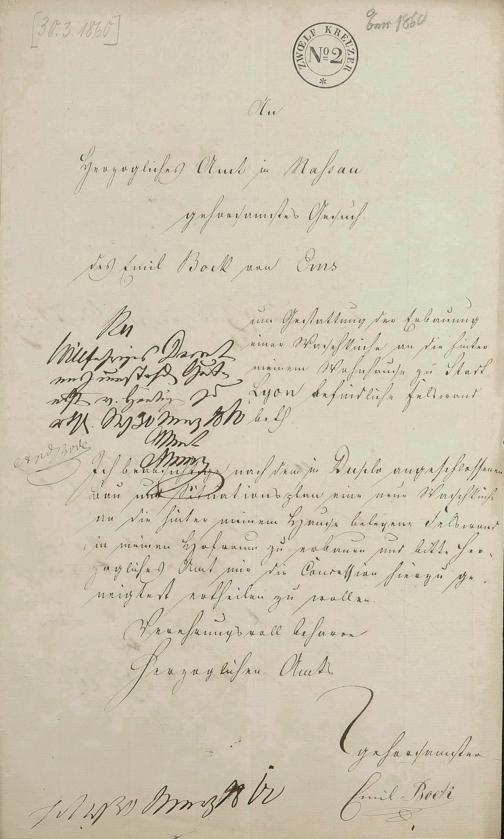 [30.3.1860]
Ems 1860
ZWŒLF KREUZER
No 2
An
Herzogliches Amt in Nassau
gehorsamstes Gesuch
des Emil Bock von Ems
um Gestattung der Erbauung
einer Waschküche an die hinter
meinem Wohnhause zu Stadt
Lyon befindliche Felswand
betr
30 März 1860
Amt
Ich beabsichtige nach dem in Duplo angeschlossenen
Bau und Situationsplan eine neue Waschküche
an die hinter meinem Hause belegene Felswand
in meinem Hofraum zu erbauen und bitte Her-
zogliches Amt mir die Concession hierzu ge-
neigtest ertheilen zu wollen.
Verehrungsvoll beharre
Herzoglichen Amts
gehorsamster
Emil Bock
30 März 18